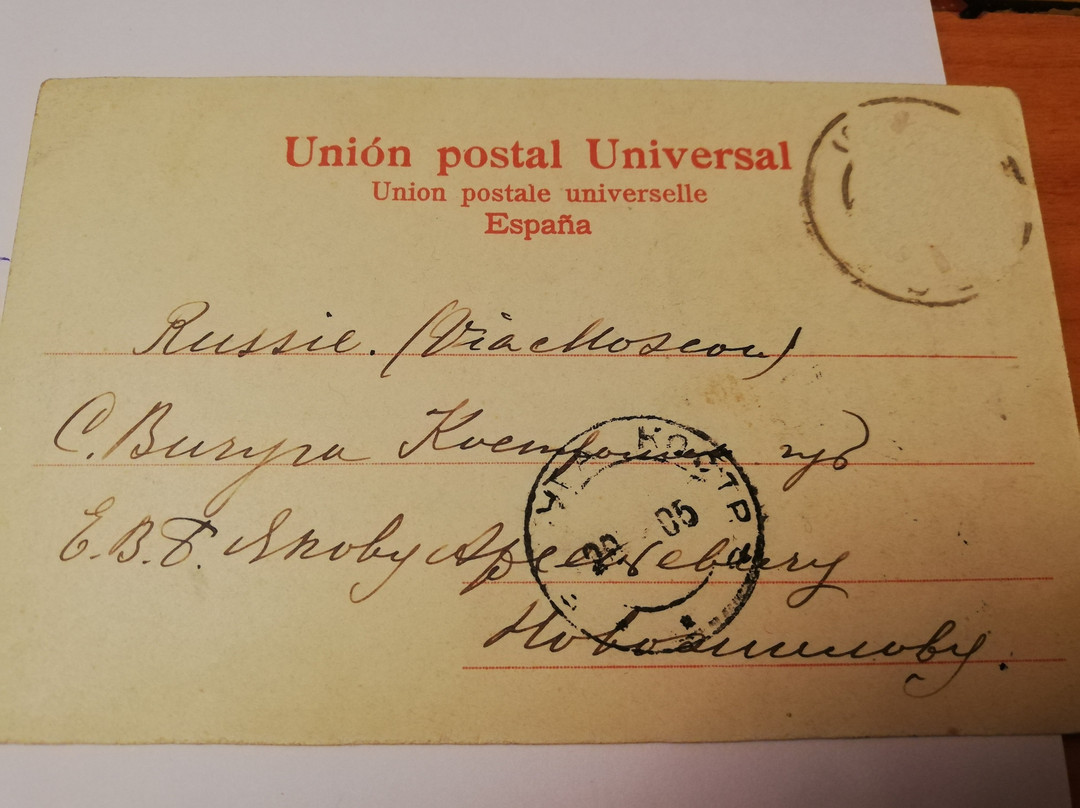 Unión postal Universal
Union postale universelle
España
Russie. (Via Moscou)
С. Вичуга Костромск. губ
Е.В.Б. Якову Арсеньевичу
Новожилову.
УГ КОСТР
22 05